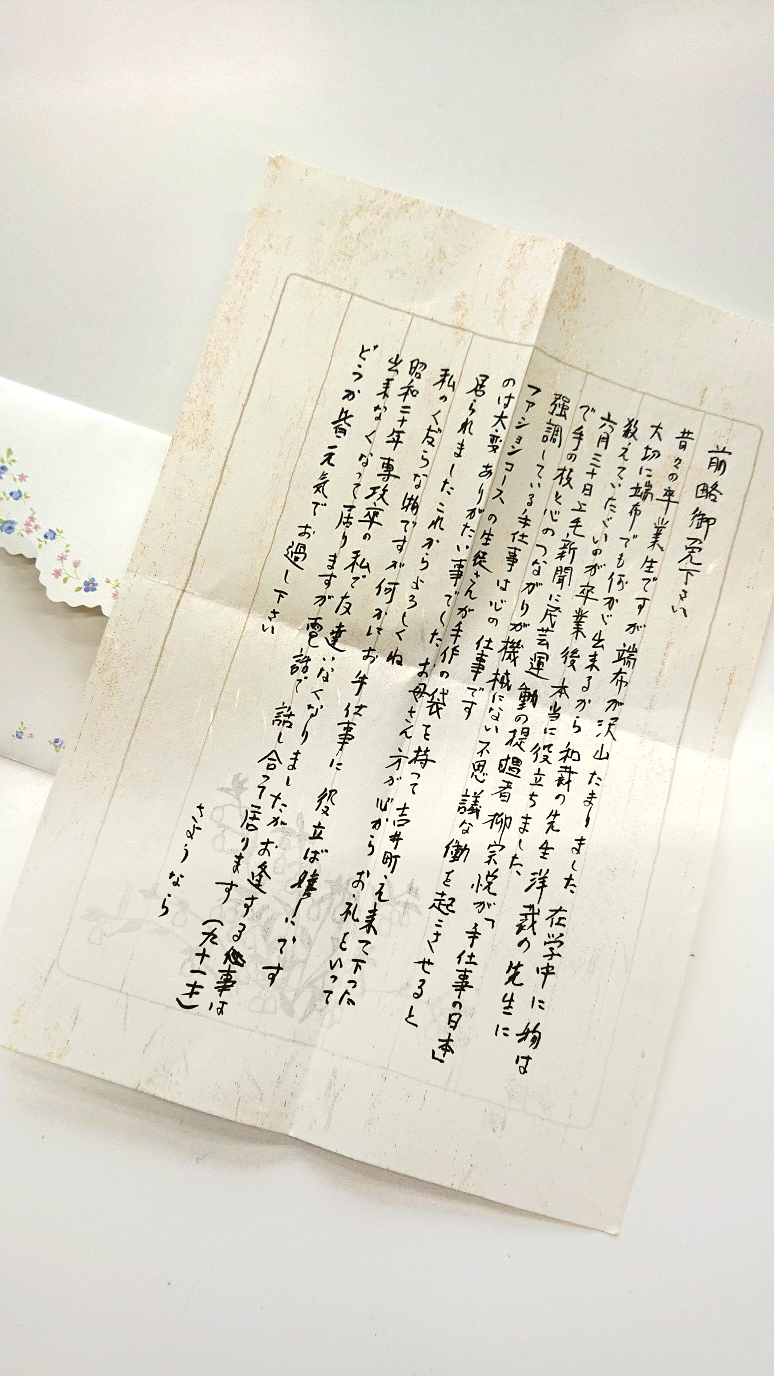 前略御免下さい
昔々の卒業生ですが端布が沢山たまりました 在学中に物は
大切に端布でも何かが出来るから和裁の先生洋裁の先生に
教えていたゞいのが卒業後本当に役立ちました
六月三十日上毛新聞に民芸運動の提唱者柳宗悦が「手仕事の日本」
で手の技と心のつながりが機械にない不思議な働を起こさせると
強調している手仕事は心の仕事です
ファションコースの生徒さんが手作の袋を持って吉井町え来て下った
のは大変ありがたい事でした お母さん方が心からお礼をいって
居られましたこれからよろしくね
私のくだらな物ですが何かにお手仕事に役立ば嬉しいです
昭和二十年専攻卒の私で友達いなくなりましたがお逢する事は
出来なくなって居りますが電話で話し合って居ります(九十一才)
どうか皆元気でお過し下さい
さようなら